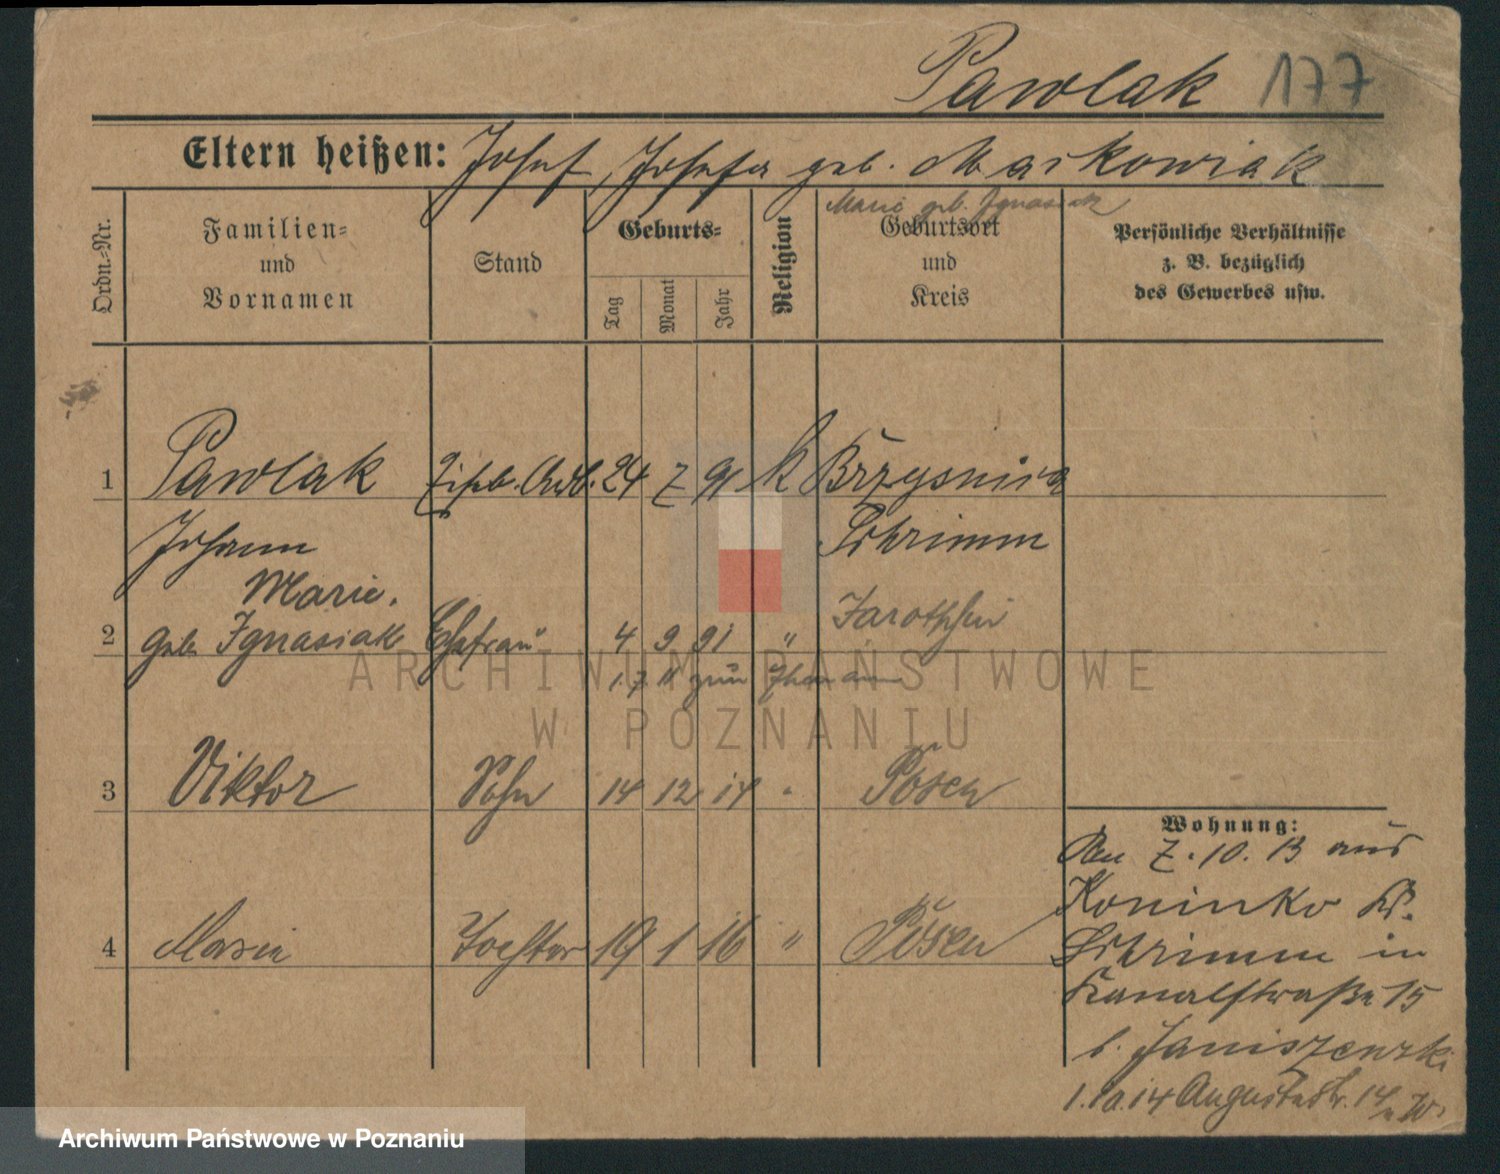 Pawlak 177
Eltern heißen: Josef, Josefa geb. Markowiak
Marie geb. Ignasiak
Ordn.-Nr.
Familien-
und
Vornamen
Stand
Geburts-
Tag
Monat
Jahr
Religion
Geburtsort
und
Kreis
Persönliche Verhältnisse
z. B. bezüglich
des Gewerbes usw.
1 Pawlak 24 7 91 k
Johann Schrimm
Marie,
2 geb Ignasiak Ehefrau 4 9 91 " Jarotschin
ARCHIWUM PAŃSTWOWE
W POZNANIU
3 Viktor Sohn 14 12 14 " Posen
4 Maria Tochter 19 1 16 " Posen
Wohnung:
Den 7.10.13 aus
Koninko Kr.
Schrimm in
Kanalstraße 15
b. Janiszewski
1.10.14 Augustastr. 14
Archiwum Państwowe w Poznaniu